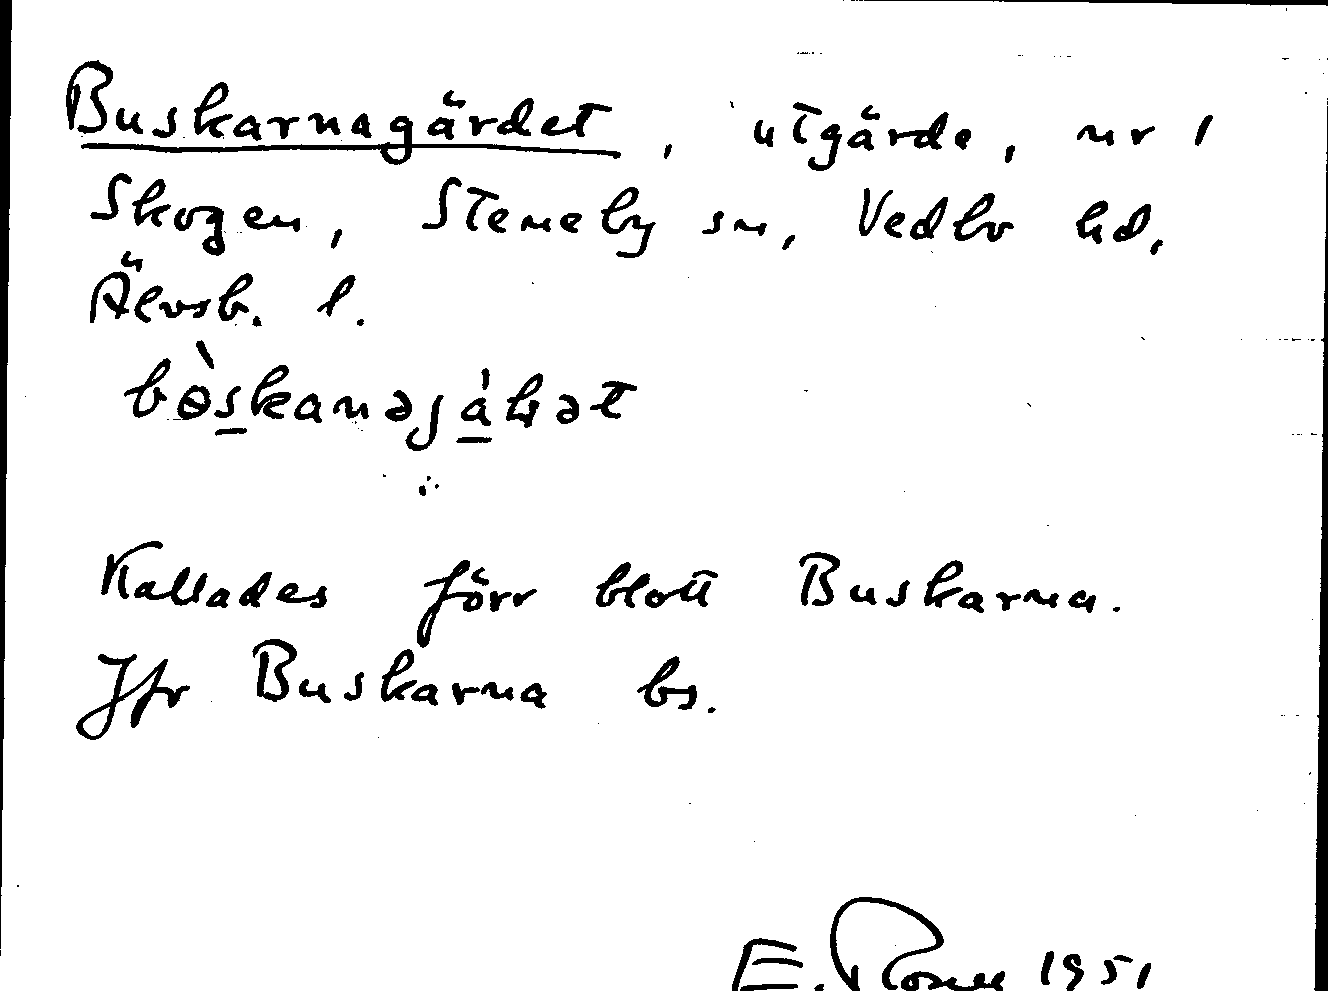 Buskarnagärdet, utgärde, nr 1
Skogen, Steneby sn, Vedbo hd,
Älvsb. l.
Kallades förr blott Buskarna.
Jfr Buskarna bs.
E. 1951